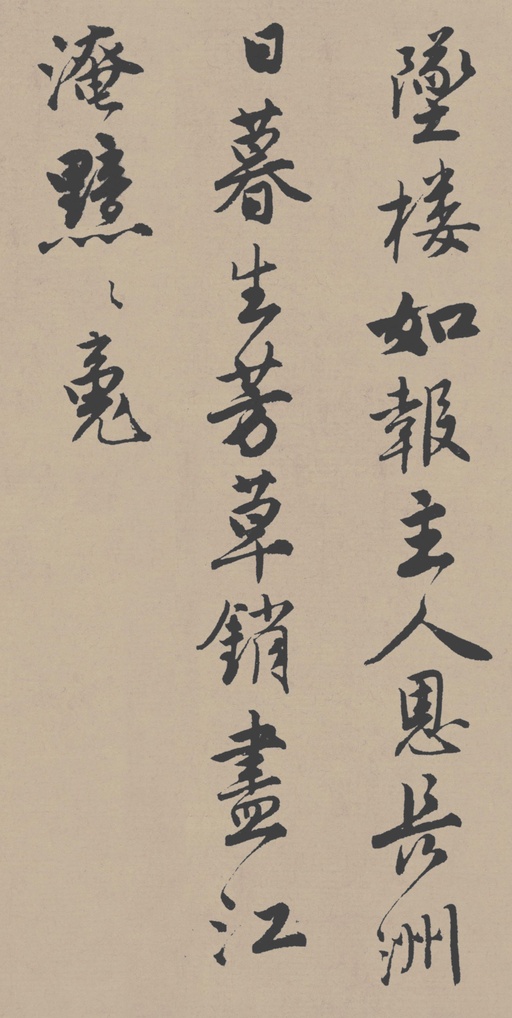 墜楼如報主人恩長洲
日暮生芳草銷盡江
淹黯〻魂